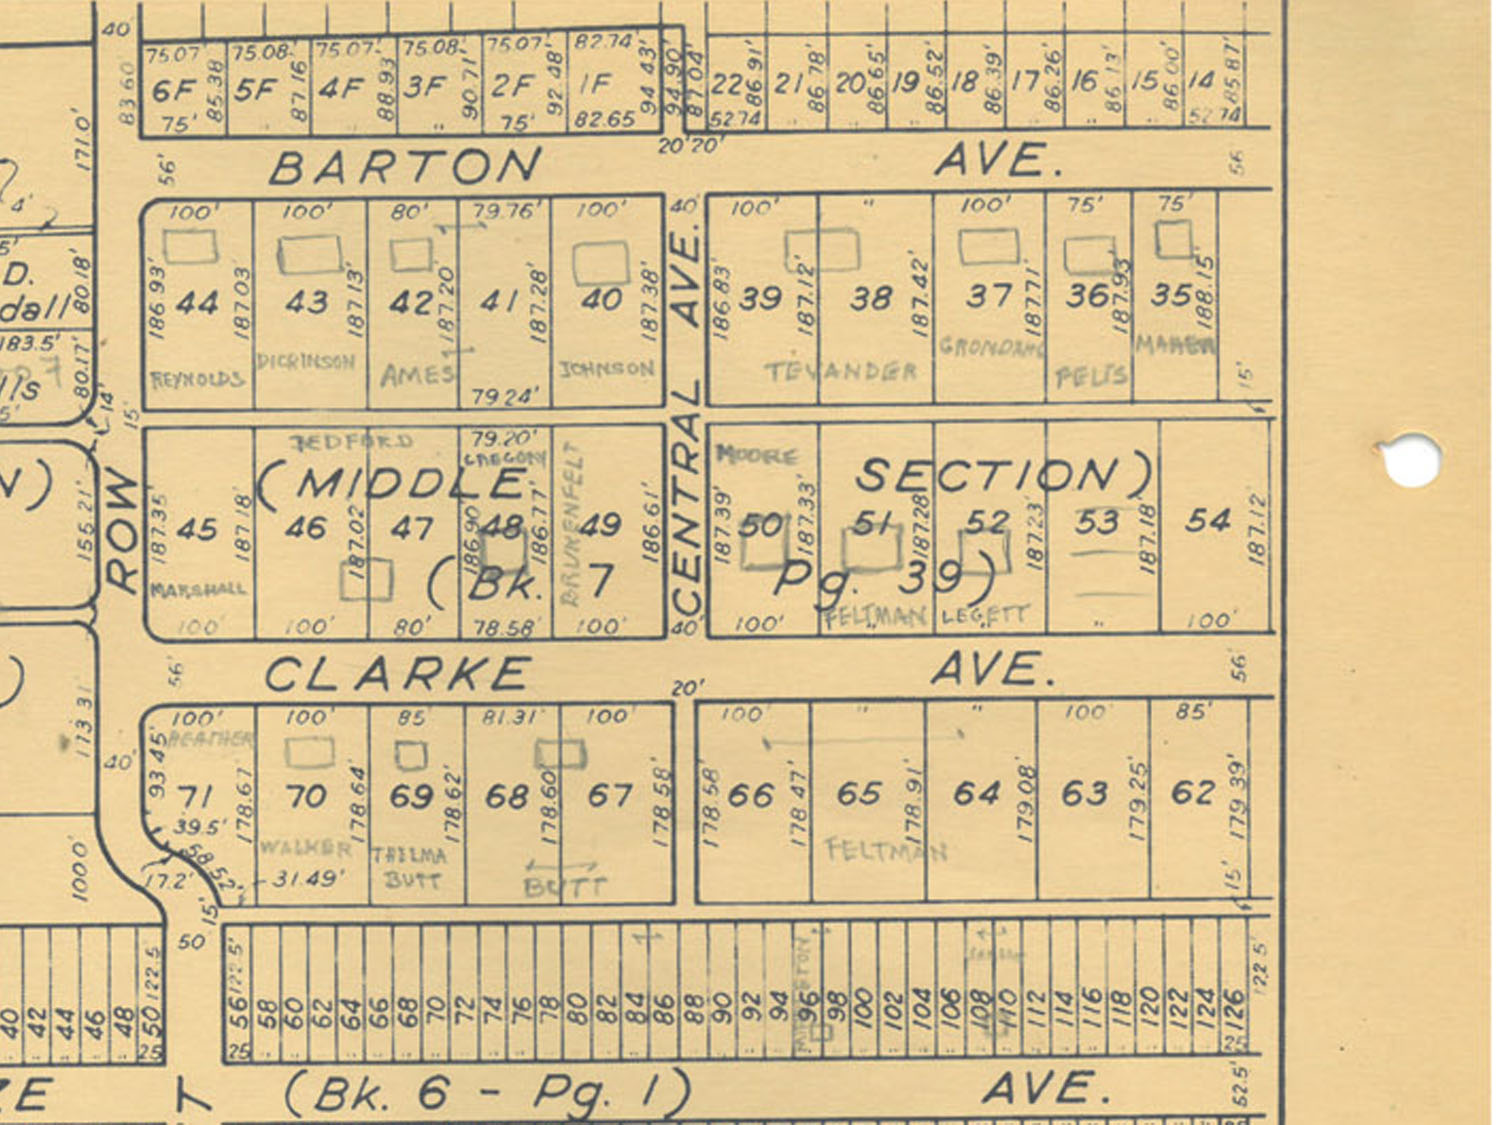 40'
75.07' 75.08' 75.07' 75.08' 75.07' 82.74'
6F 5F 4F 3F 2F 1F
83.60' 85.38 87.16 88.93 90.71' 92.48' 94.43' 94.90' 87.04'
75' " " 75' 82.65
22 21 20 19 18 17 16 15 14
86.91' 86.78' 86.65' 86.52' 86.39' 86.26' 86.13' 86.00' 85.87'
52.74 " " " " " " " 52.74
171.0'
20' 20'
56' BARTON AVE. 56'
4'
100' 100' 80' 79.76' 100' 40' 100' " 100' 75' 75'
5'
D.
dall
80.18'
44 43 42 41 40 39 38 37 36 35
186.93' 187.03' 187.13' 187.20' 187.28' 187.38' 186.83' 187.12' 187.42' 187.71' 187.93' 188.15'
183.5'
lls
5'
80.17'
REYNOLDS DICKINSON AMES JOHNSON TEVANDER GRONDAHL PELTS MAHER
79.24'
14' 15' 15'
CENTRAL AVE.
BEDFORD 79.20' GREGORY BRUKENFELT MOORE
N) ROW (MIDDLE SECTION)
155.21'
45 46 47 48 49 50 51 52 53 54
187.35' 187.18' 187.02' 186.90' 186.77' 186.61' 187.39' 187.33' 187.28' 187.23' 187.18' 187.12'
(Bk. 7 Pg. 39)
MARSHALL FELTMAN LEGETT
100' 100' 80' 78.58' 100' 40' 100' " " " 100'
)
56' CLARKE AVE. 56'
20'
113.31'
100' 100' 85' 81.31' 100' 100' " " 100' 85'
HEATHER
40'
71 70 69 68 67 66 65 64 63 62
93.45' 178.67' 178.64' 178.62' 178.60' 178.58' 178.58' 178.47' 178.91' 179.08' 179.25' 179.39'
39.5'
58.52'
WALKER THELMA BUTT BUTT FELTMAN
1000'
17.2' 31.49'
15' 15'
50'
122.5 122.5' 122.5'
40 42 44 46 48 50 56 58 60 62 64 66 68 70 72 74 76 78 80 82 84 86 88 90 92 94 96 98 100 102 104 106 108 110 112 114 116 118 120 122 124 126
25 25 25
ZE T (Bk. 6 - Pg. 1) AVE. 52.5'